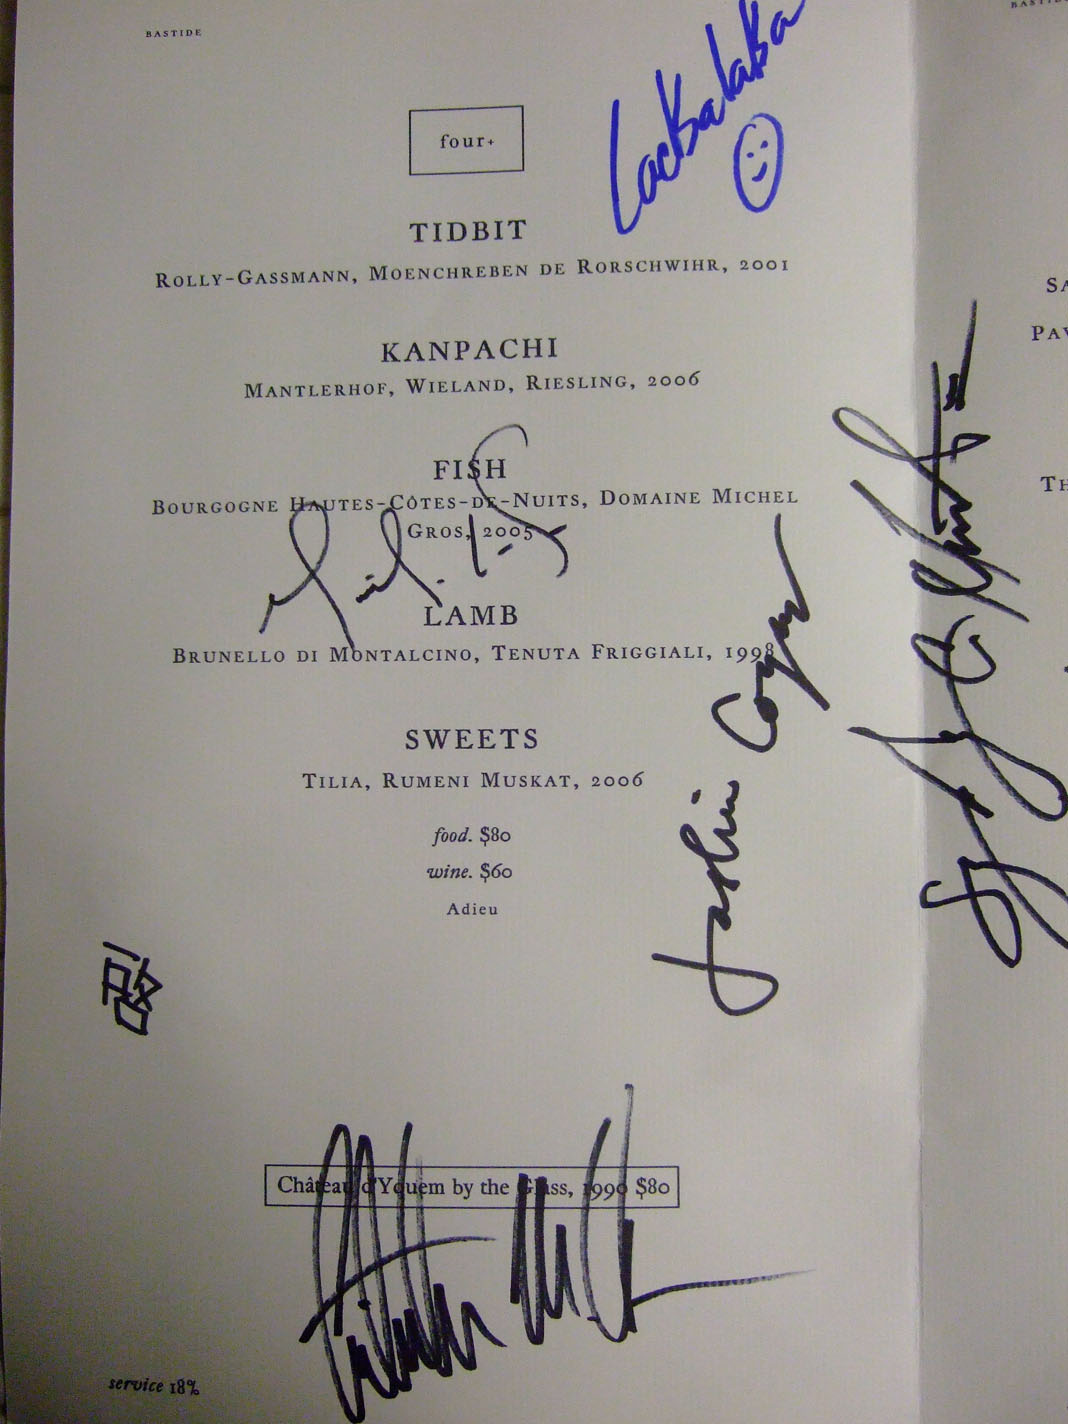 BASTIDE
four+
TIDBIT
ROLLY-GASSMANN, MOENCHREBEN DE RORSCHWIHR, 2001
KANPACHI
MANTLERHOF, WIELAND, RIESLING, 2006
FISH
BOURGOGNE HAUTES-CÔTES-DE-NUITS, DOMAINE MICHEL
GROS, 2005
LAMB
BRUNELLO DI MONTALCINO, TENUTA FRIGGIALI, 1998
SWEETS
TILIA, RUMENI MUSKAT, 2006
food. $80
wine. $60
Adieu
啓
Château d'Yquem by the Glass, 1990 $80
service 18%